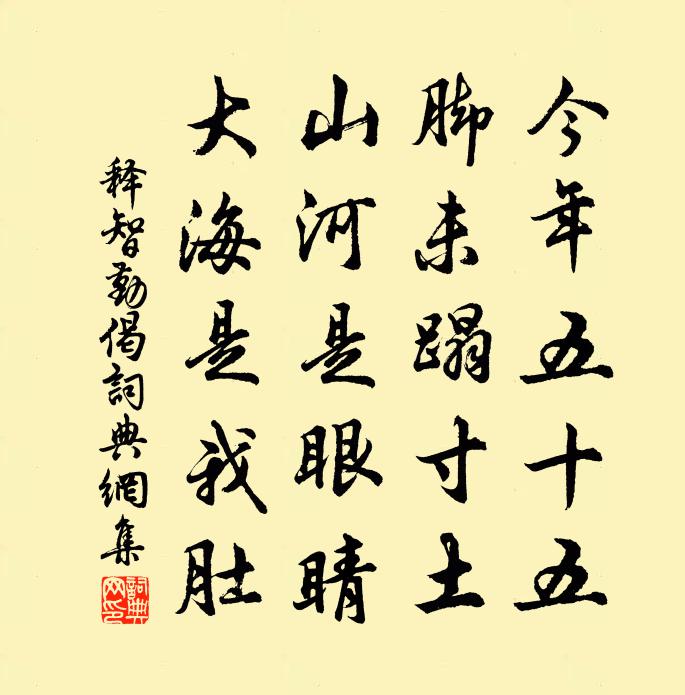 今年五十五
脚未蹋寸土
山河是眼睛
大海是我肚
释智勤偈詞典網集
詞典网印